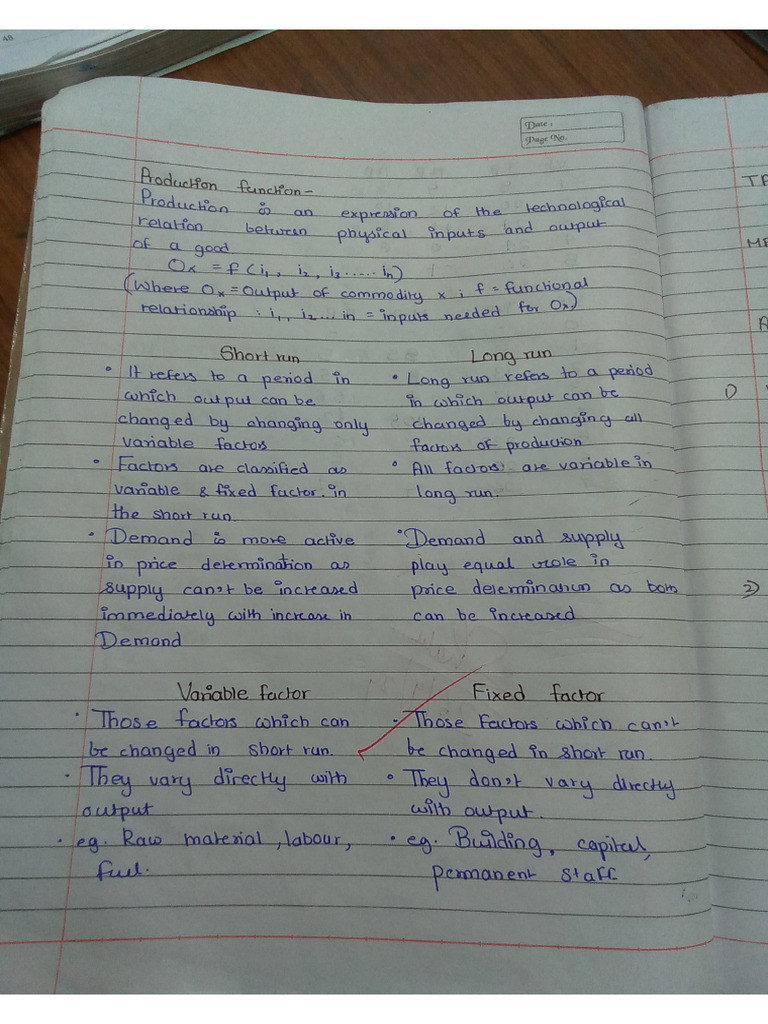 48
Date :
Page No.
Production function-
Production is an expression of the technological
relation between physical inputs and output
of a good.
Ox = f (i1, i2, i3.....in)
(Where Ox = Output of commodity x ; f = functional
relationship : i1, i2...in = inputs needed for Ox)
Short run
• It refers to a period in
which output can be
changed by changing only
variable factors
• Factors are classified as
variable & fixed factor. in
the short run.
• Demand is more active
in price determination as
supply can't be increased
immediately with increase in
Demand
Long run
• Long run refers to a period
in which output can be
changed by changing all
factors of production
• All factors are variable in
long run.
• Demand and supply
play equal role in
price determination as both
can be increased
Variable factor
• Those factors which can
be changed in short run.
• They vary directly with
output
• eg. Raw material, labour,
fuel.
Fixed factor
• Those Factors which can't
be changed in short run.
• They don't vary directly
with output.
• eg. Building, capital,
permanent staff
1)
2)